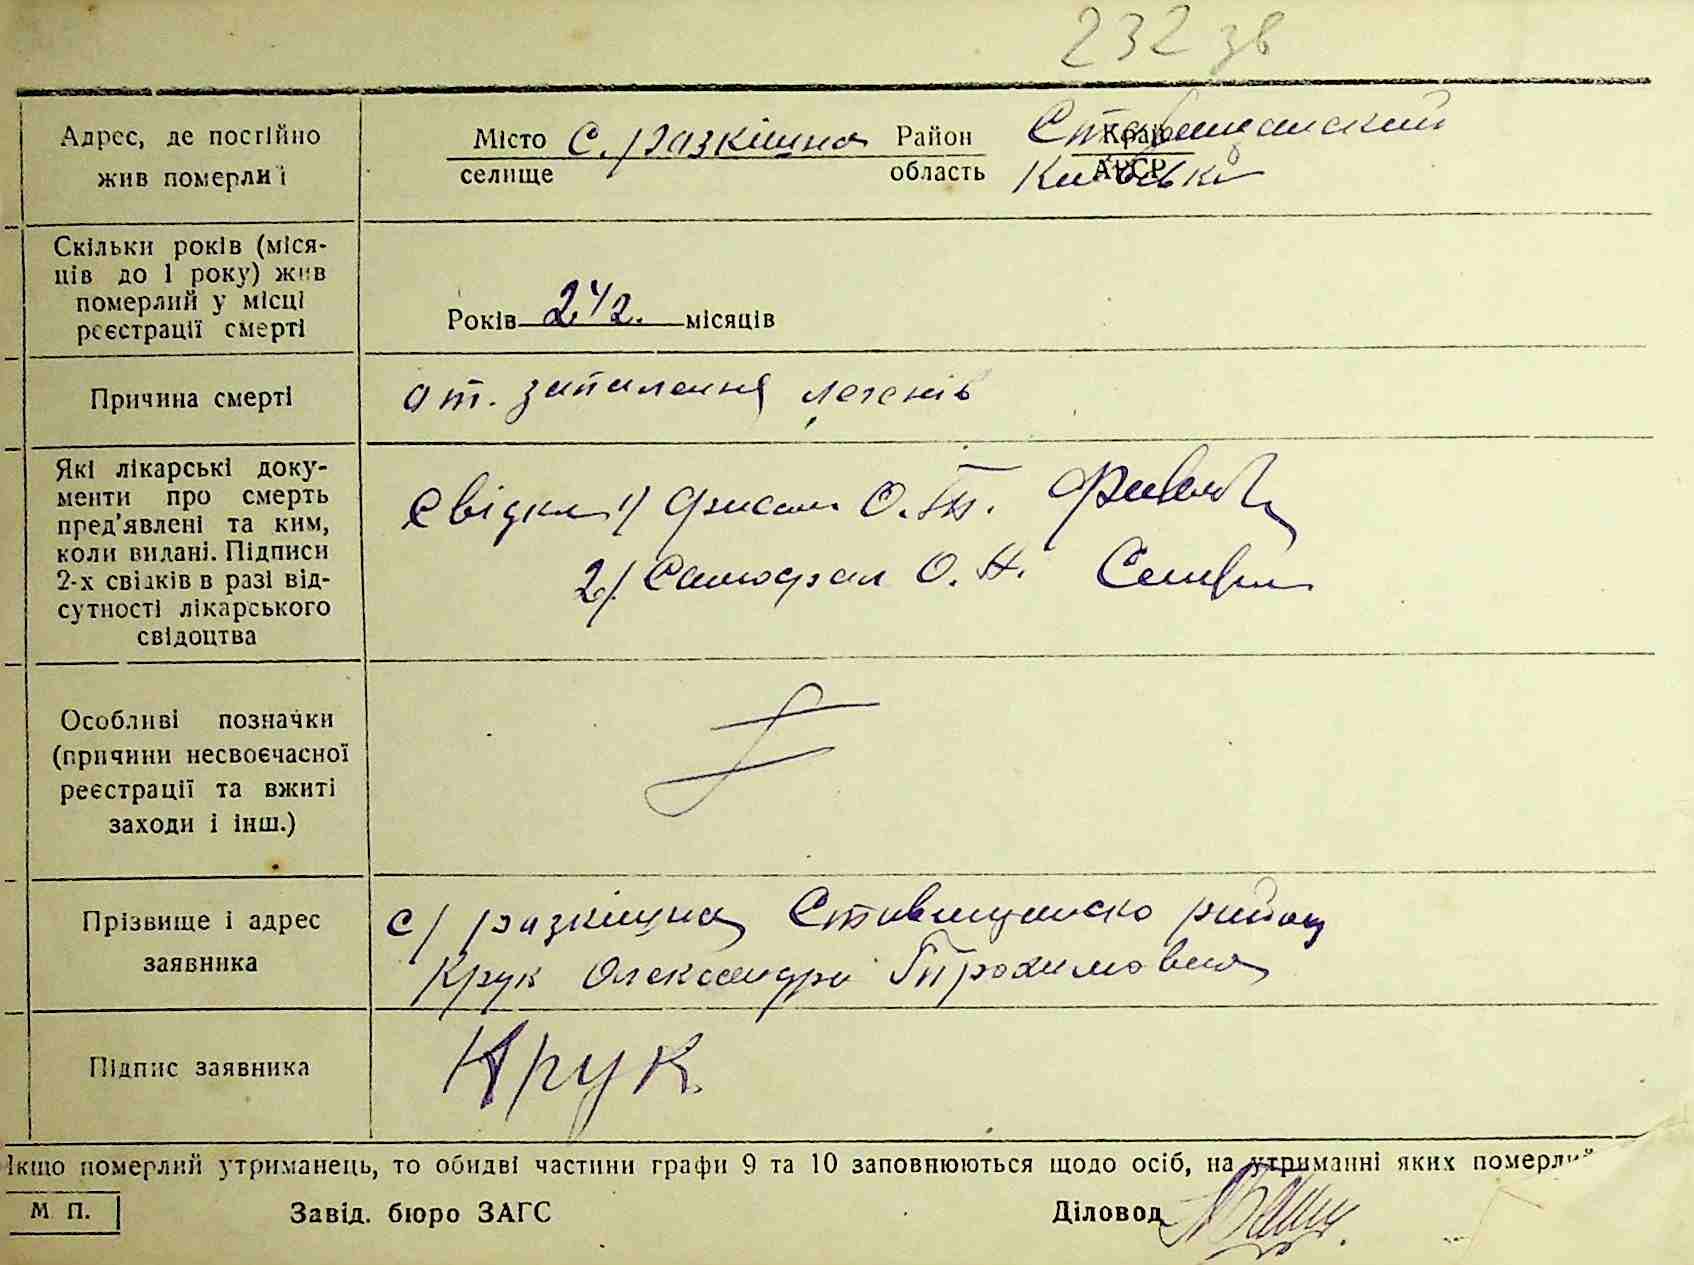 232 зв
Адрес, де постійно
жив померли і
Місто с. разкішна Район Ставищанский Край
селище область Київська АРСР
Скільки років (міся-
ців до 1 року) жив
померлий у місці
реєстрації смерті
Років 2 1/2. місяців
Причина смерті
от. запалення легенів
Які лікарські доку-
менти про смерть
пред'явлені та ким,
коли видані. Підписи
2-х свідків в разі від-
сутності лікарського
свідоцтва
свідки 1/ О. Т.
2/ Самофал О. Н.
Особливі позначки
(причини несвоєчасної
реєстрації та вжиті
заходи і інш.)
Прізвище і адрес
заявника
с/ разкішна Ставищанско району
Крук Олександра Трохимовна
Підпис заявника
Крук
Якщо померлий утриманець, то обидві частини графи 9 та 10 заповнюються щодо осіб, на утриманні яких померлий
М П. Завід. бюро ЗАГС Діловод